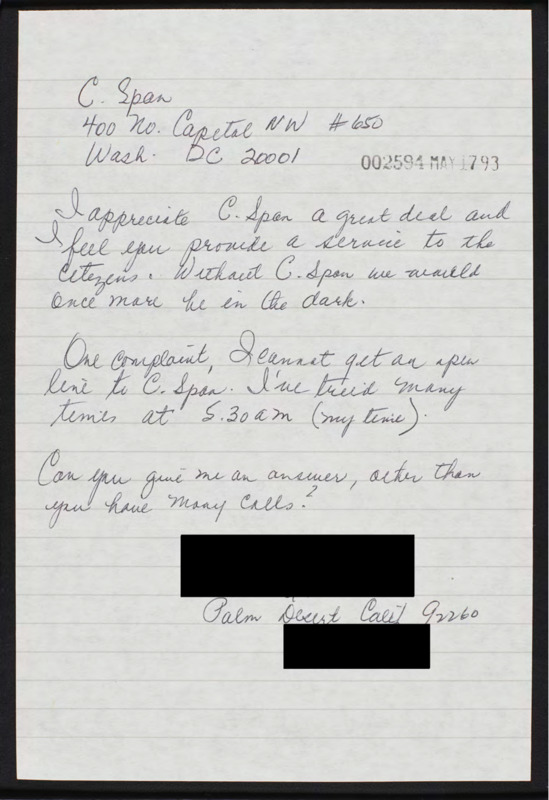 C. Span
400 No. Capetol NW #650
Wash. DC 20001
002594 MAY 1793
I appreciate C. Span a great deal and
I feel you provide a service to the
Citezens. Without C. Span we would
once more be in the dark.
One complaint, I cannot get an open
line to C. Span. I've tried many
times at 5.30 am (my time).
Can you give me an answer, other than
you have many calls.?
Palm Desert Calif 92260